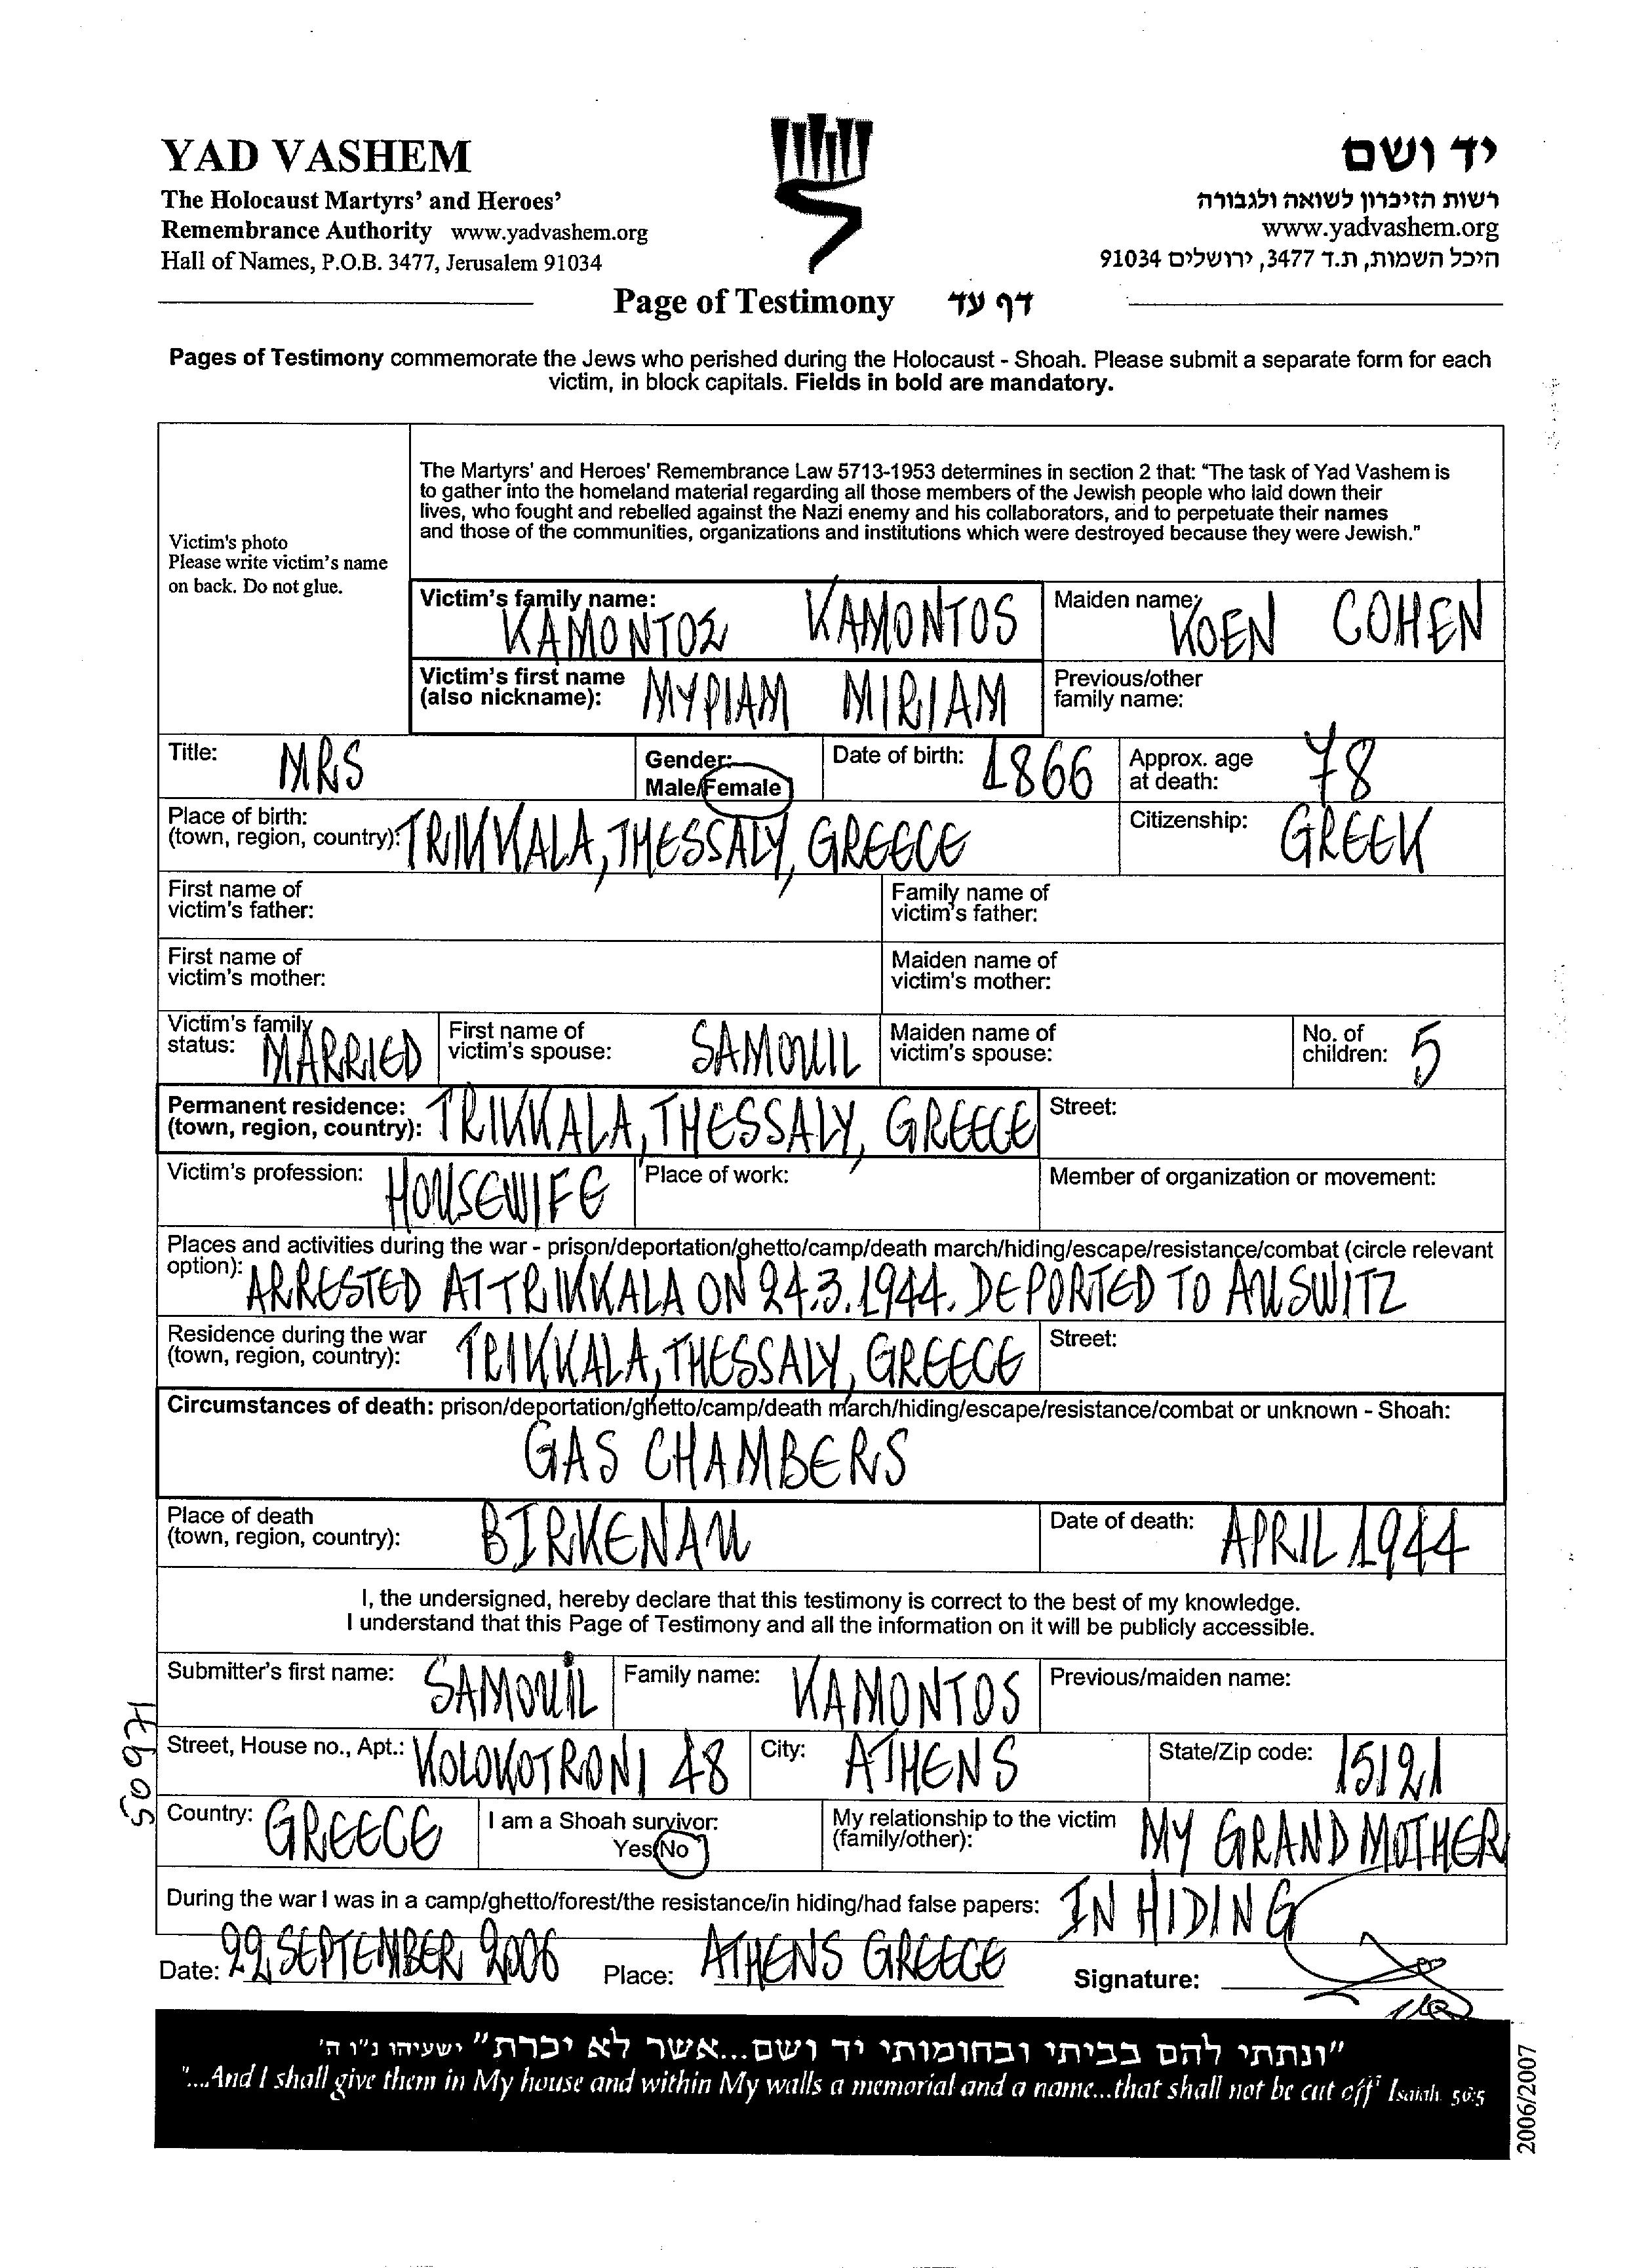 YAD VASHEM
The Holocaust Martyrs' and Heroes'
Remembrance Authority www.yadvashem.org
Hall of Names, P.O.B. 3477, Jerusalem 91034
יד ושם
רשות הזיכרון לשואה ולגבורה
www.yadvashem.org
היכל השמות, ת.ד 3477, ירושלים 91034
Page of Testimony דף עד
Pages of Testimony commemorate the Jews who perished during the Holocaust - Shoah. Please submit a separate form for each
victim, in block capitals. Fields in bold are mandatory.
Victim's photo
Please write victim's name
on back. Do not glue.
The Martyrs' and Heroes' Remembrance Law 5713-1953 determines in section 2 that: "The task of Yad Vashem is
to gather into the homeland material regarding all those members of the Jewish people who laid down their
lives, who fought and rebelled against the Nazi enemy and his collaborators, and to perpetuate their names
and those of the communities, organizations and institutions which were destroyed because they were Jewish."
Victim's family name: ΚΑΜΟΝΤΟΣ KAMONTOS
Maiden name: ΚΟΕΝ COHEN
Victim's first name
(also nickname): ΜΥΡΙΑΜ MIRIAM
Previous/other
family name:
Title: MRS
Gender:
Male/Female
Date of birth: 1866
Approx. age
at death: 78
Place of birth:
(town, region, country): TRIKKALA, THESSALY, GREECE
Citizenship: GREEK
First name of
victim's father:
Family name of
victim's father:
First name of
victim's mother:
Maiden name of
victim's mother:
Victim's family
status: MARRIED
First name of
victim's spouse: SAMOUIL
Maiden name of
victim's spouse:
No. of
children: 5
Permanent residence:
(town, region, country): TRIKKALA, THESSALY, GREECE
Street:
Victim's profession: HOUSEWIFE
Place of work:
Member of organization or movement:
Places and activities during the war - prison/deportation/ghetto/camp/death march/hiding/escape/resistance/combat (circle relevant
option): ARRESTED AT TRIKKALA ON 24.3.1944. DEPORTED TO AUSWITZ
Residence during the war
(town, region, country): TRIKKALA, THESSALY, GREECE
Street:
Circumstances of death: prison/deportation/ghetto/camp/death march/hiding/escape/resistance/combat or unknown - Shoah:
GAS CHAMBERS
Place of death
(town, region, country): BIRKENAU
Date of death: APRIL 1944
I, the undersigned, hereby declare that this testimony is correct to the best of my knowledge.
I understand that this Page of Testimony and all the information on it will be publicly accessible.
Submitter's first name: SAMOUIL
Family name: KAMONTOS
Previous/maiden name:
Street, House no., Apt.: KOLOKOTRONI 48
City: ATHENS
State/Zip code: 15121
Country: GREECE
I am a Shoah survivor:
Yes/No
My relationship to the victim
(family/other): MY GRANDMOTHER
During the war I was in a camp/ghetto/forest/the resistance/in hiding/had false papers: IN HIDING
Date: 22 SEPTEMBER 2006 Place: ATHENS GREECE Signature:
"ונתתי להם בביתי ובחומותי יד ושם...אשר לא יכרת" ישעיהו נ"ו ה'
"....And I shall give them in My house and within My walls a memorial and a name...that shall not be cut off" Isaiah. 56:5
2006/2007